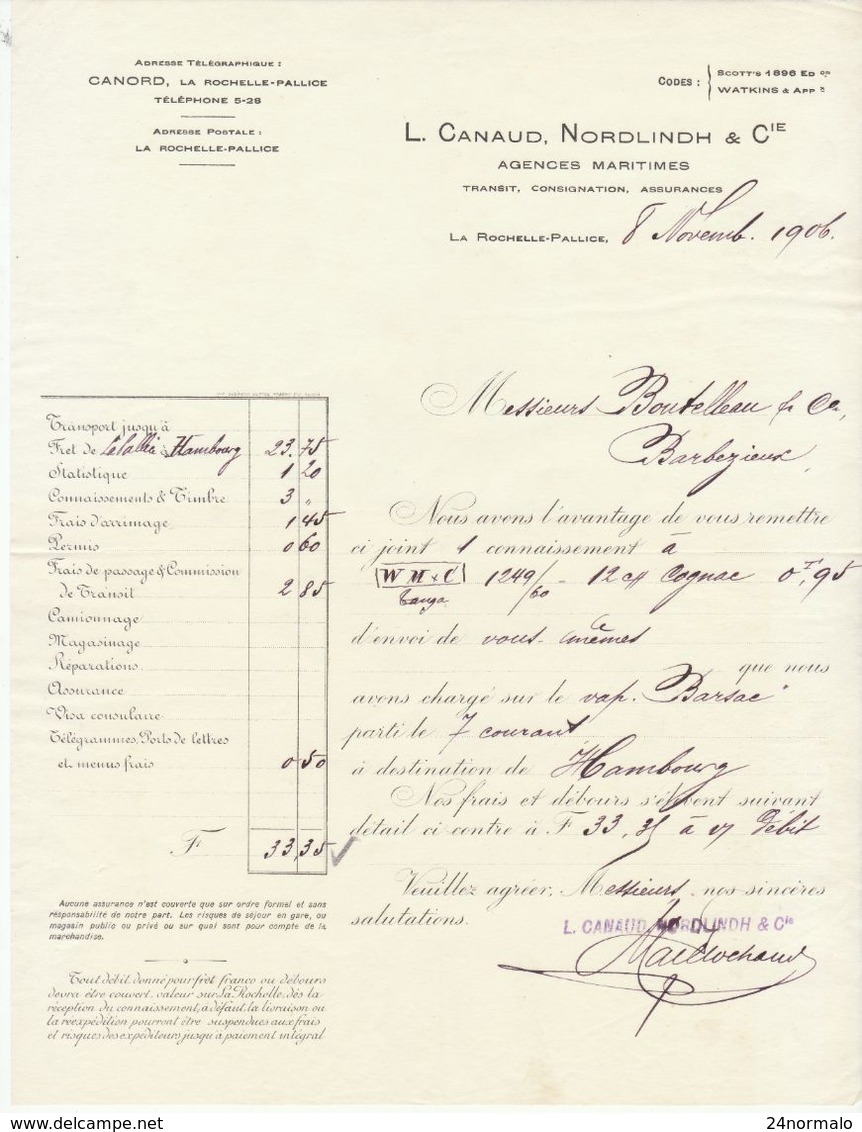 ADRESSE TÉLÉGRAPHIQUE :
CANORD, LA ROCHELLE-PALLICE
TÉLÉPHONE 5-28
ADRESSE POSTALE :
LA ROCHELLE-PALLICE
CODES : SCOTT'S 1896 ED on
WATKINS & APP x
L. CANAUD, NORDLINDH & CIE
AGENCES MARITIMES
TRANSIT, CONSIGNATION, ASSURANCES
LA ROCHELLE-PALLICE, 8 Novemb. 1906.
Messieurs Boutelleau & Co,
Barbezieux,
Transport jusqu'à
Fret de à Hambourg 23.75
Statistique 1 20
Connaissements & Timbre 3 "
Frais d'arrimage 1 45
Permis 0 60
Frais de passage & Commission
de Transit 2 85
Camionnage
Magasinage
Réparations
Assurance
Visa consulaire
Télégrammes, Ports de lettres
et menus frais 0 50
F 33,35
Nous avons l'avantage de vous remettre
ci joint 1 connaissement à
W M & C 1249/60 - 12 Cognac 0T,95
Tanga
d'envoi de vous-mêmes
que nous
avons chargé sur le vap. Barsac"
parti le 7 courant,
à destination de Hambourg
Nos frais et débours s'élèvent suivant
détail ci contre à F 33,35 à v/ débit
Veuillez agréer, Messieurs, nos sincères
salutations.
L. CANAUD, NORDLINDH & Cie
Aucune assurance n'est couverte que sur ordre formel et sans
résponsabilité de notre part. Les risques de séjour en gare, ou
magasin public ou privé ou sur quai sont pour compte de la
marchandise.
Tout débit donné pour fret franco ou débours
devra être couvert valeur sur La Rochelle, dès la
réception du connaissement, à défaut, la livraison ou
la réexpédition pourront être suspendues aux frais
et risques des expéditeurs jusqu'à paiement intégral
delcampe.net
24normalo